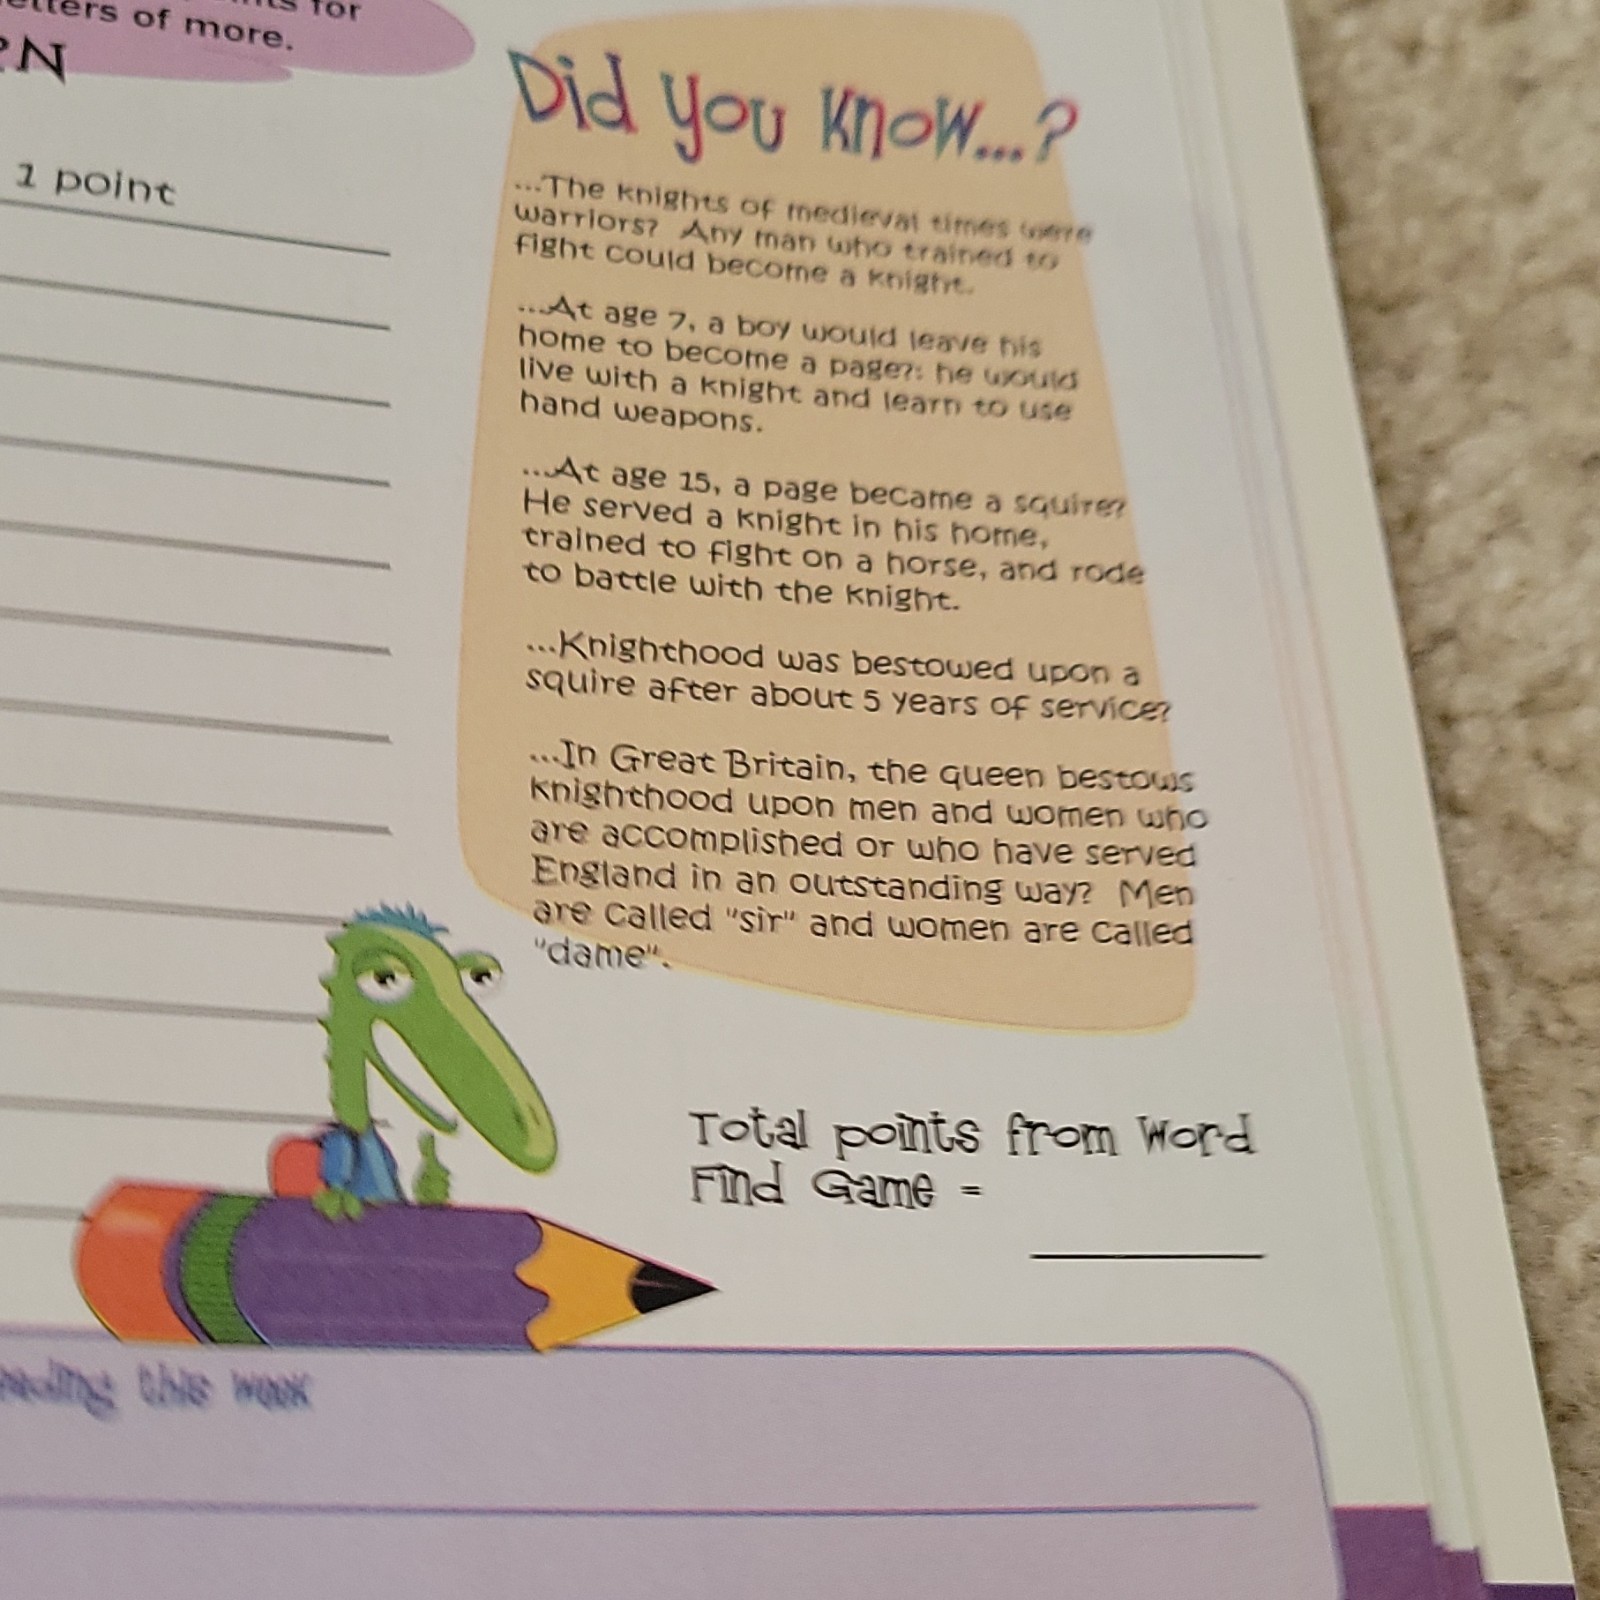 for
letters of more.
RN
1 point
Did you know...?
...The knights of medieval times were
warriors? Any man who trained to
fight could become a knight.
...At age 7, a boy would leave his
home to become a page?: he would
live with a knight and learn to use
hand weapons.
...At age 15, a page became a squire?
He served a knight in his home,
trained to fight on a horse, and rode
to battle with the knight.
...Knighthood was bestowed upon a
squire after about 5 years of service?
...In Great Britain, the queen bestows
knighthood upon men and women who
are accomplished or who have served
England in an outstanding way? Men
are called "sir" and women are called
"dame".
Total points from Word
Find Game =
this week